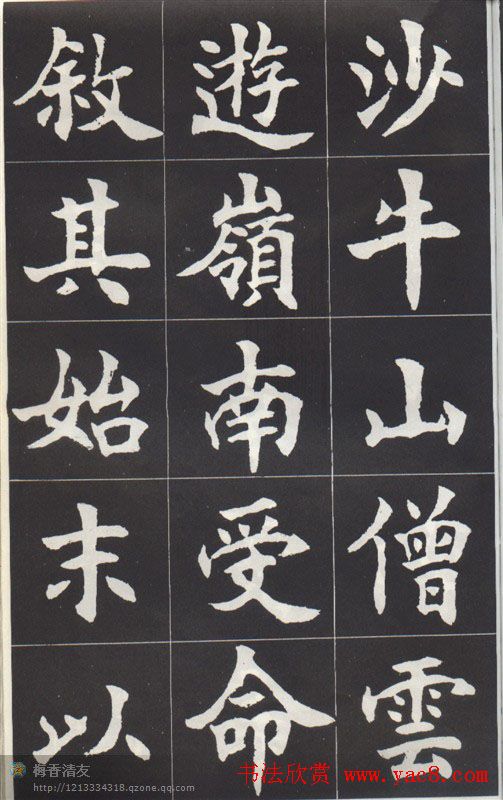 沙牛山僧雲
遊嶺南受命
敘其始末以
书法欣赏 www.yac8.com
梅香清友
http://1213334318.qzone.qq.com